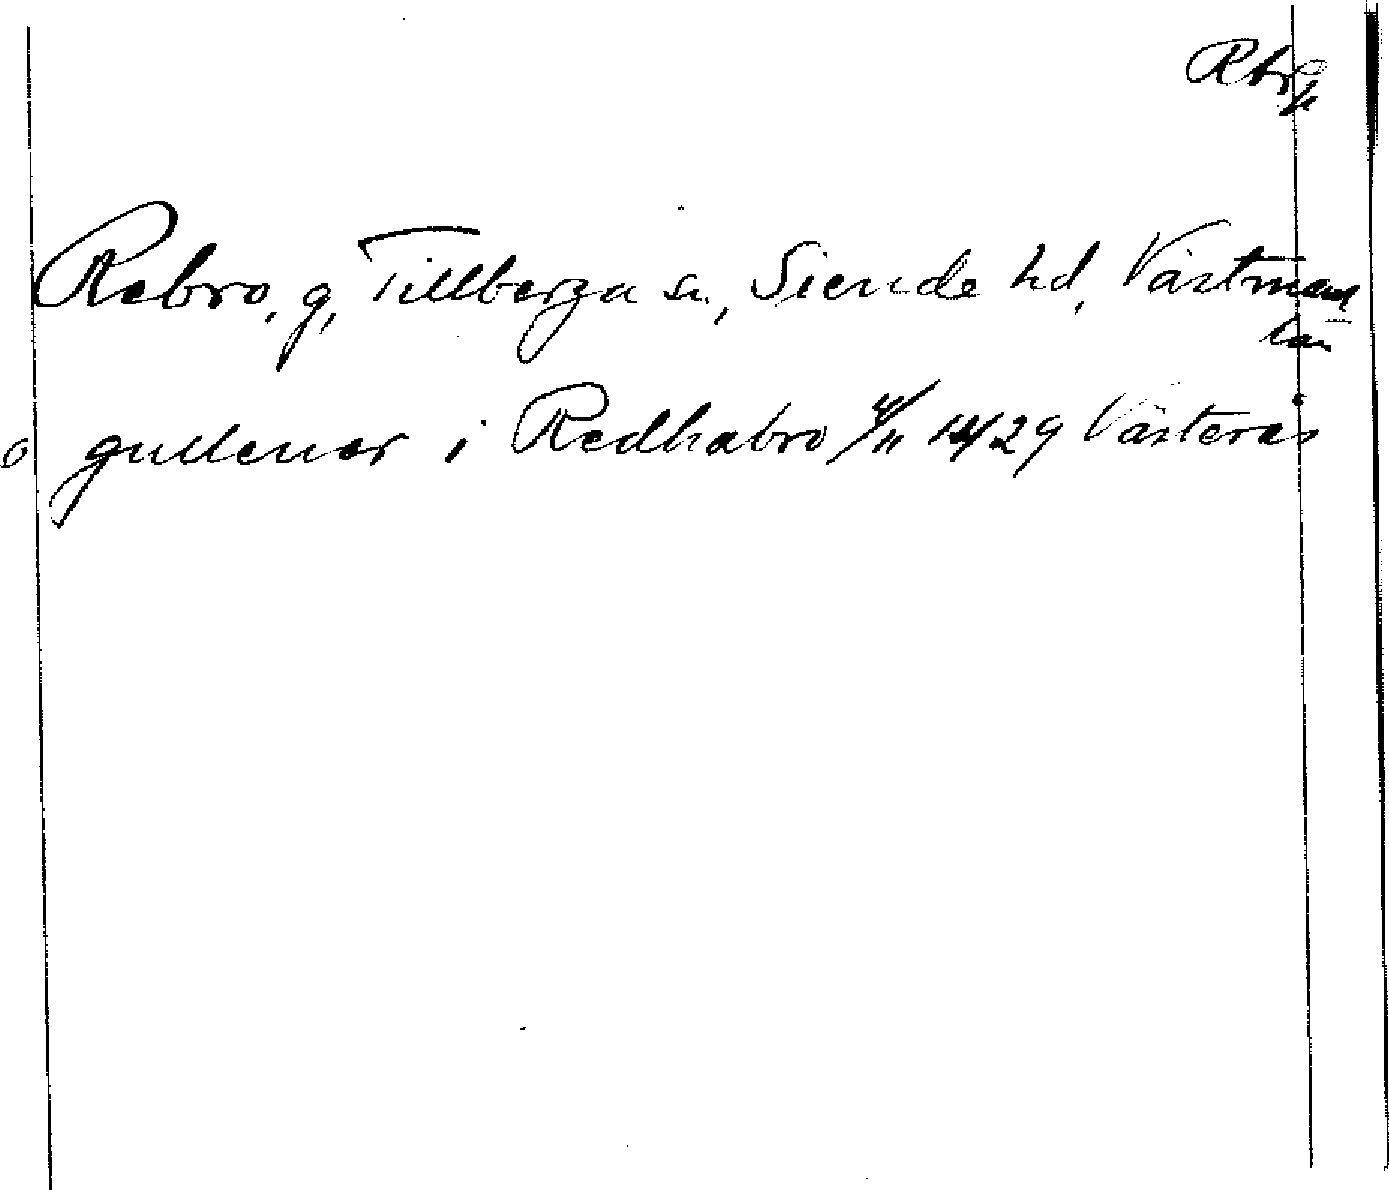 Rebro, g, Tillberga sn, Siende hd, Västman
lan
o gudlener i Redhabro 4/11 1429 Västerås